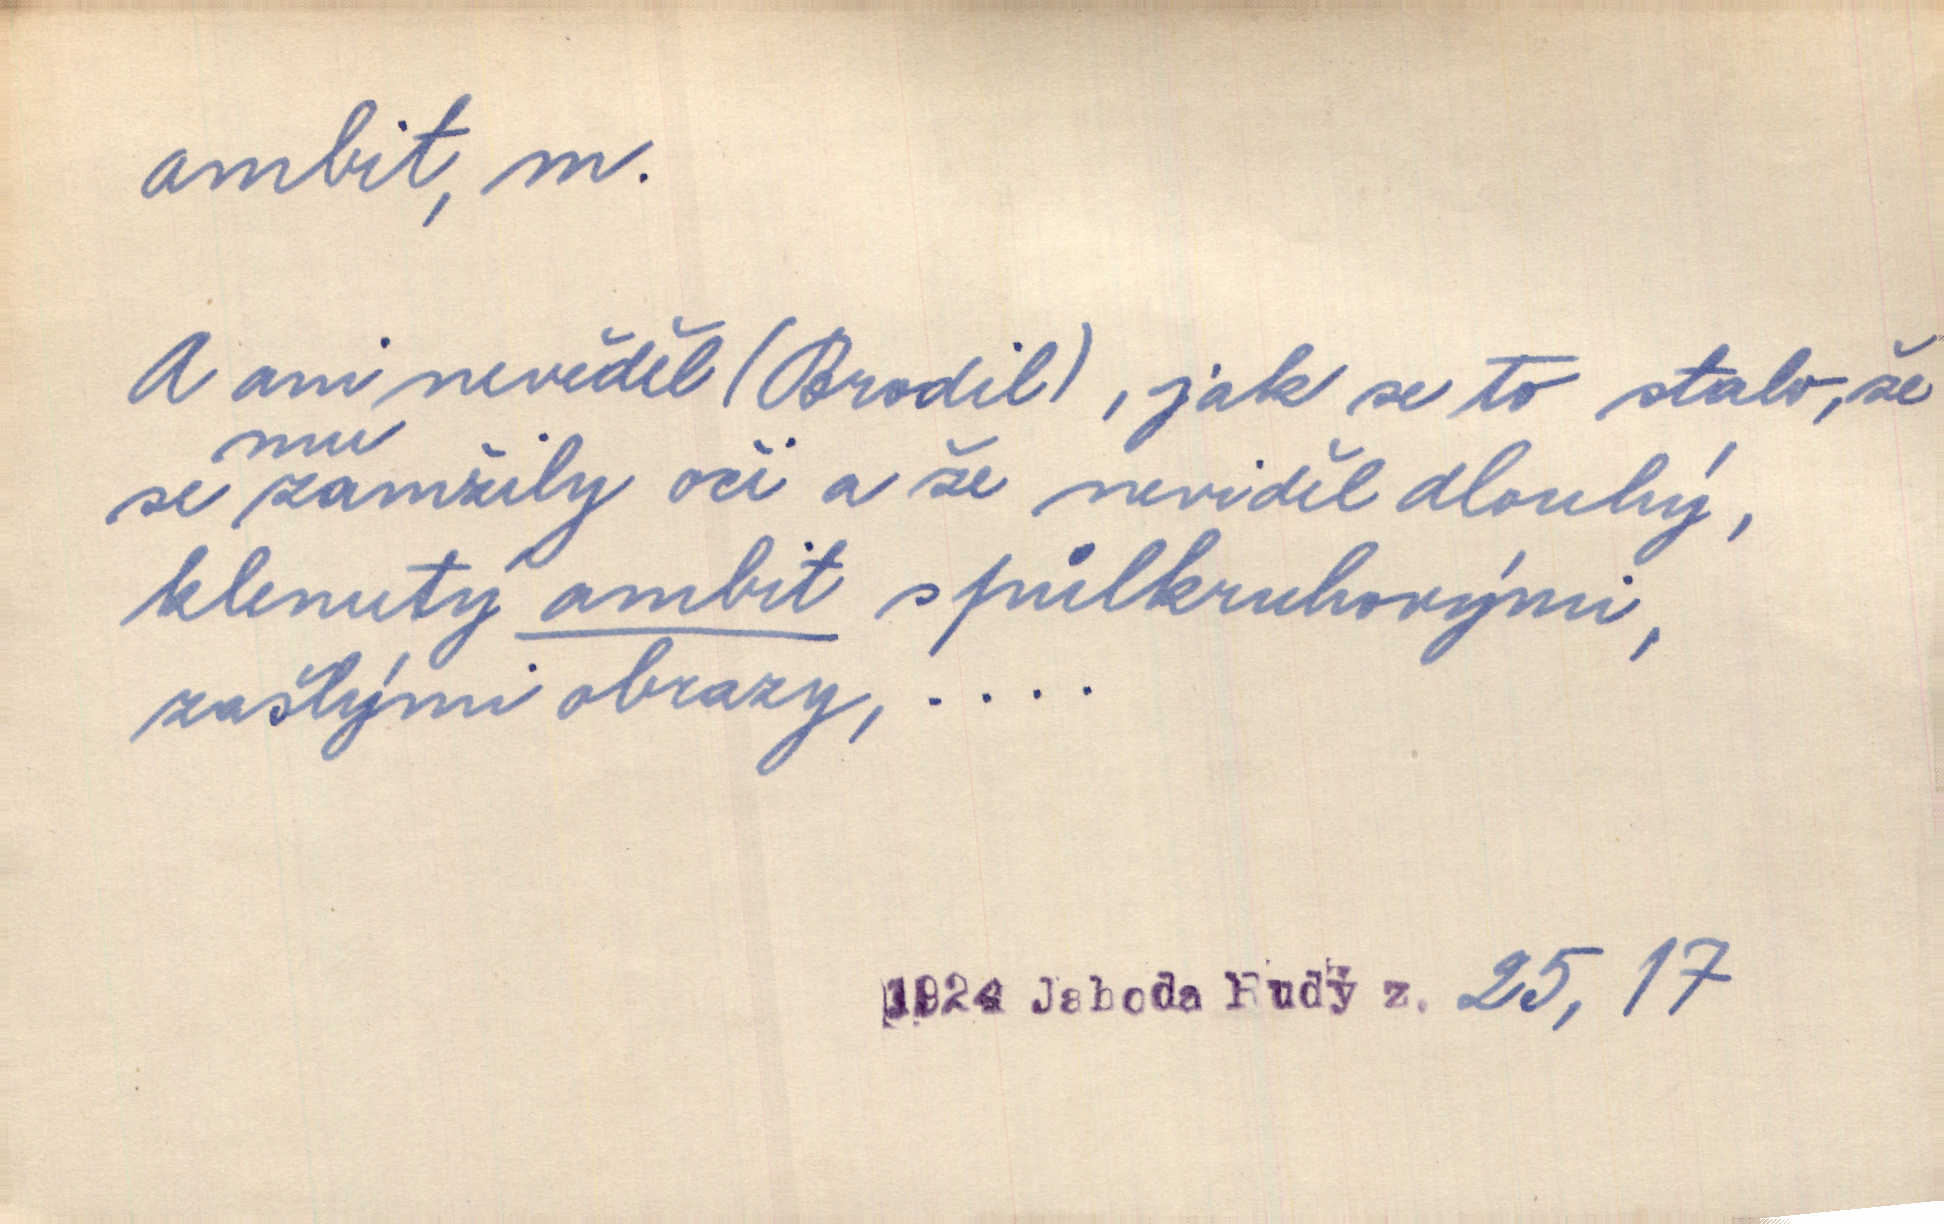 ambit, m.
A ani nevěděl (Brodil), jak se to stalo, že
mu
se zamžily oči a že neviděl dlouhý,
klenutý ambit s půlkruhovými,
zašlými obrazy, ....
1924 Jahoda Rudý z. 25, 17